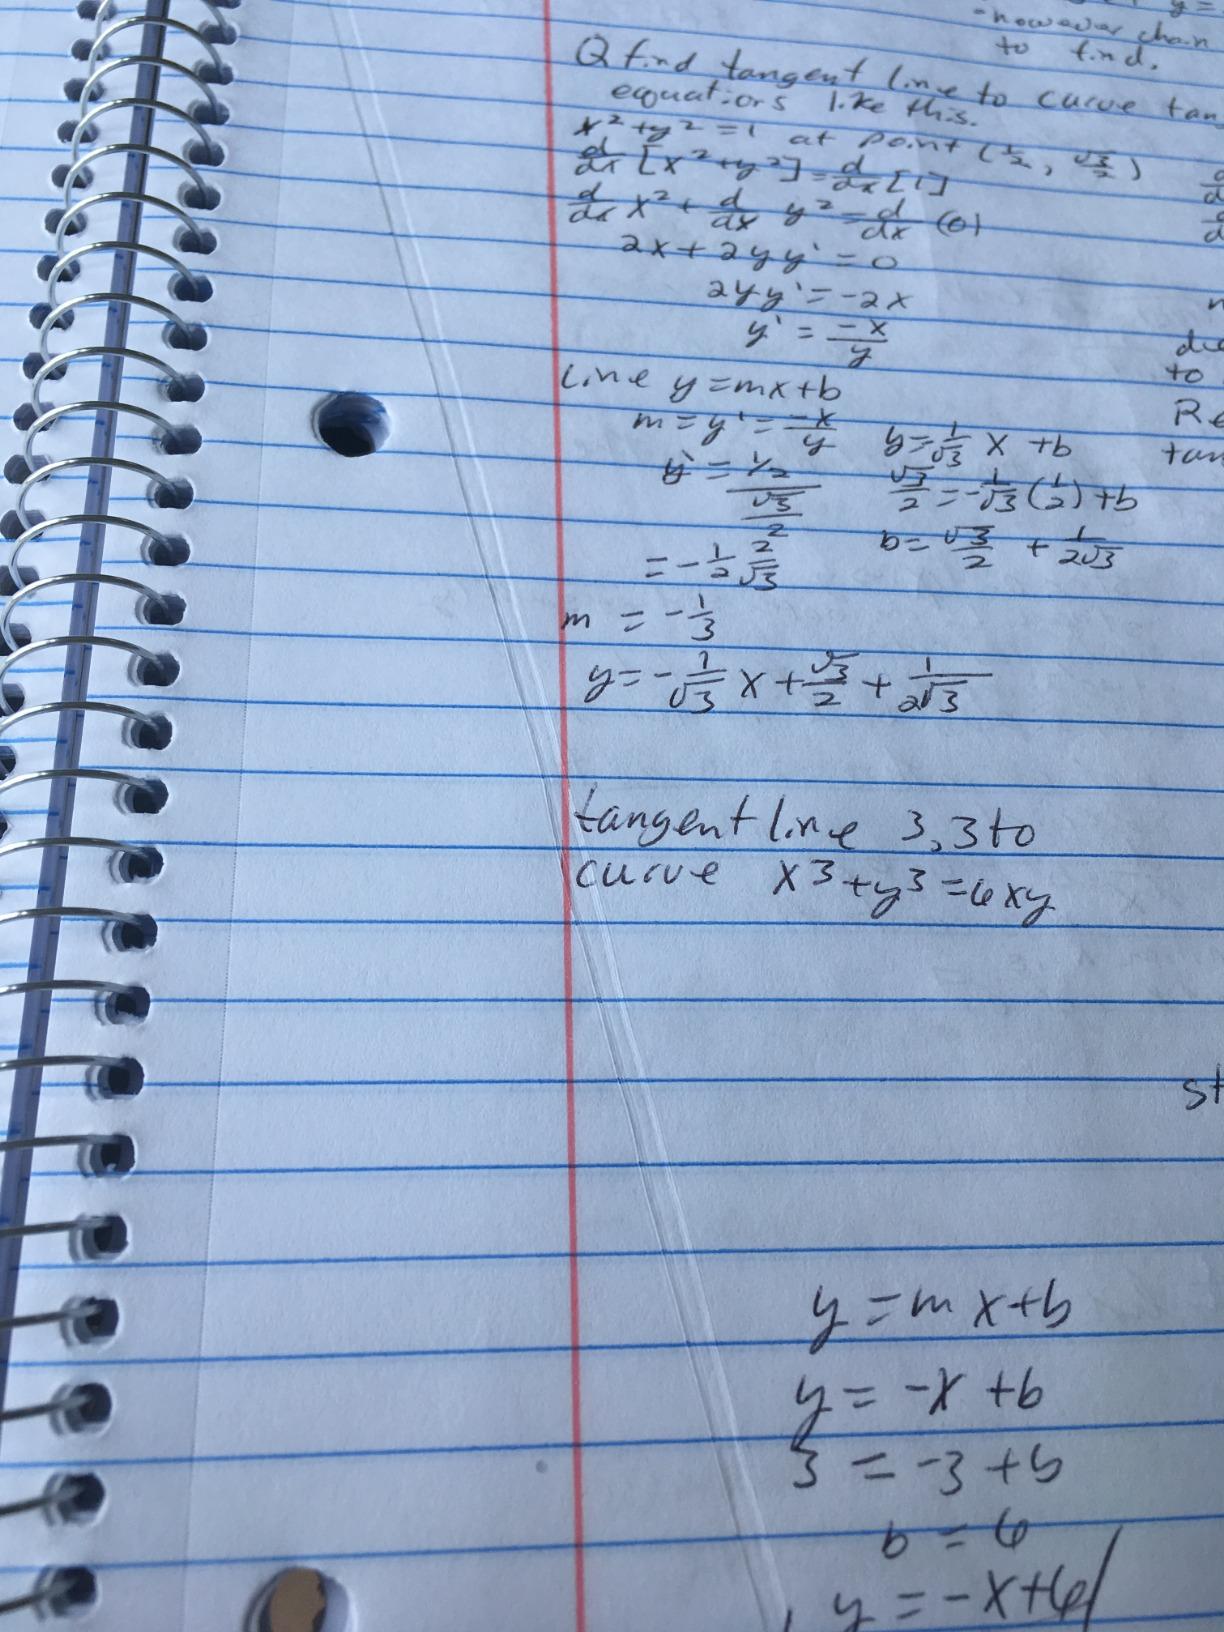 y =
- however chain
to find.
Q find tangent line to curve tan
equations like this.
x² + y² = 1 at point (1/2, √3/2)
d/dx [x² + y²] = d/dx [1]
d/dx x² + d/dx y² = d/dx (0)
2x + 2yy' = 0
2yy' = -2x
y' = -x/y
Line y = mx + b
m = y' = -x/y
y' = (1/2)/(√3/2)
= -1/2 2/√3
m = -1/3
y = 1/√3 x + b
√3/2 = -1/√3 (1/2) + b
b = √3/2 + 1/2√3
y = -1/√3 x + √3/2 + 1/2√3
to
Re
tan
tangent line 3,3 to
curve x³ + y³ = 6xy
st
y = mx + b
y = -x + b
3 = -3 + b
b = 6
y = -x + 6